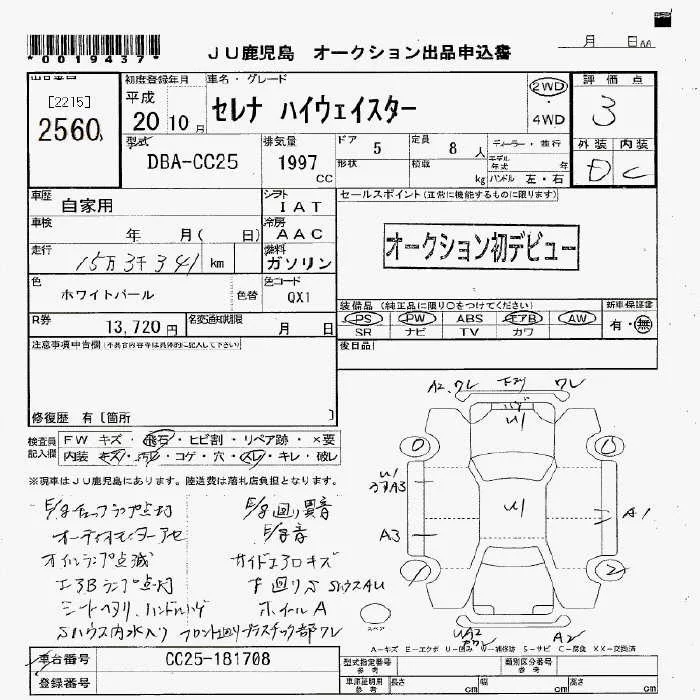 *0019437*
JU鹿児島 オークション出品申込書
月 日
出品番号
[2215]
2560
初度登録年月
平成
20 10月
車名・グレード
セレナ ハイウェイスター
2WD
・
4WD
評価点
3
外装 内装
D C
型式
DBA-CC25
排気量
1997
CC
ドア
5
定員
8 人
形状
積載
kg
ディーラー・並行
モデル年式 年
ハンドル 左・右
車歴
自家用
シフト
IAT
セールスポイント(正常に機能するものに限ります)
オークション初デビュー
車検
年 月( 日)
冷房
AAC
走行
15万3千341 km
燃料
ガソリン
色
ホワイトパール
色替
色コード
QX1
装備品(純正品に限り○をつけてください)
PS PW ABS エアB AW
SR ナビ TV カワ
新車保証書
有・無
R券
13,720円
名変通知期限
月 日
後日品
注意事項申告欄(不具合内容等は具体的に記入して下さい)
修復歴 有〔箇所 〕
検査員記入欄
FW キズ・飛石・ヒビ割・リペア跡・×要
内装・キズ・汚レ・コゲ・穴・スレ・キレ・破レ
※現車はJU鹿児島にあります。陸送費は落札店負担となります。
E/gチェックランプ点灯
オーディオモニターアセ
オイルランプ点滅
エアBランプ点灯
シートヘタリ、ハンドルハゲ
Sハウス内水入り
E/g回り異音
E/g音
サイドエアロキズ
下回りS
ホイールA
フロント回りプラスチック部ワレ
A2、ワレ
ワレ
ハゲ
U1
U1
A3
A3
U1
A1
UA2
A2
スペア
A-キズ E-エクボ U-凹み W-補修跡 S-サビ C-腐食 XX-交換済
車台番号
CC25-181708
登録番号
型式指定番号
参考
類別区分番号
参考
車庫証明用
参考
長さ cm
幅 cm
高さ cm